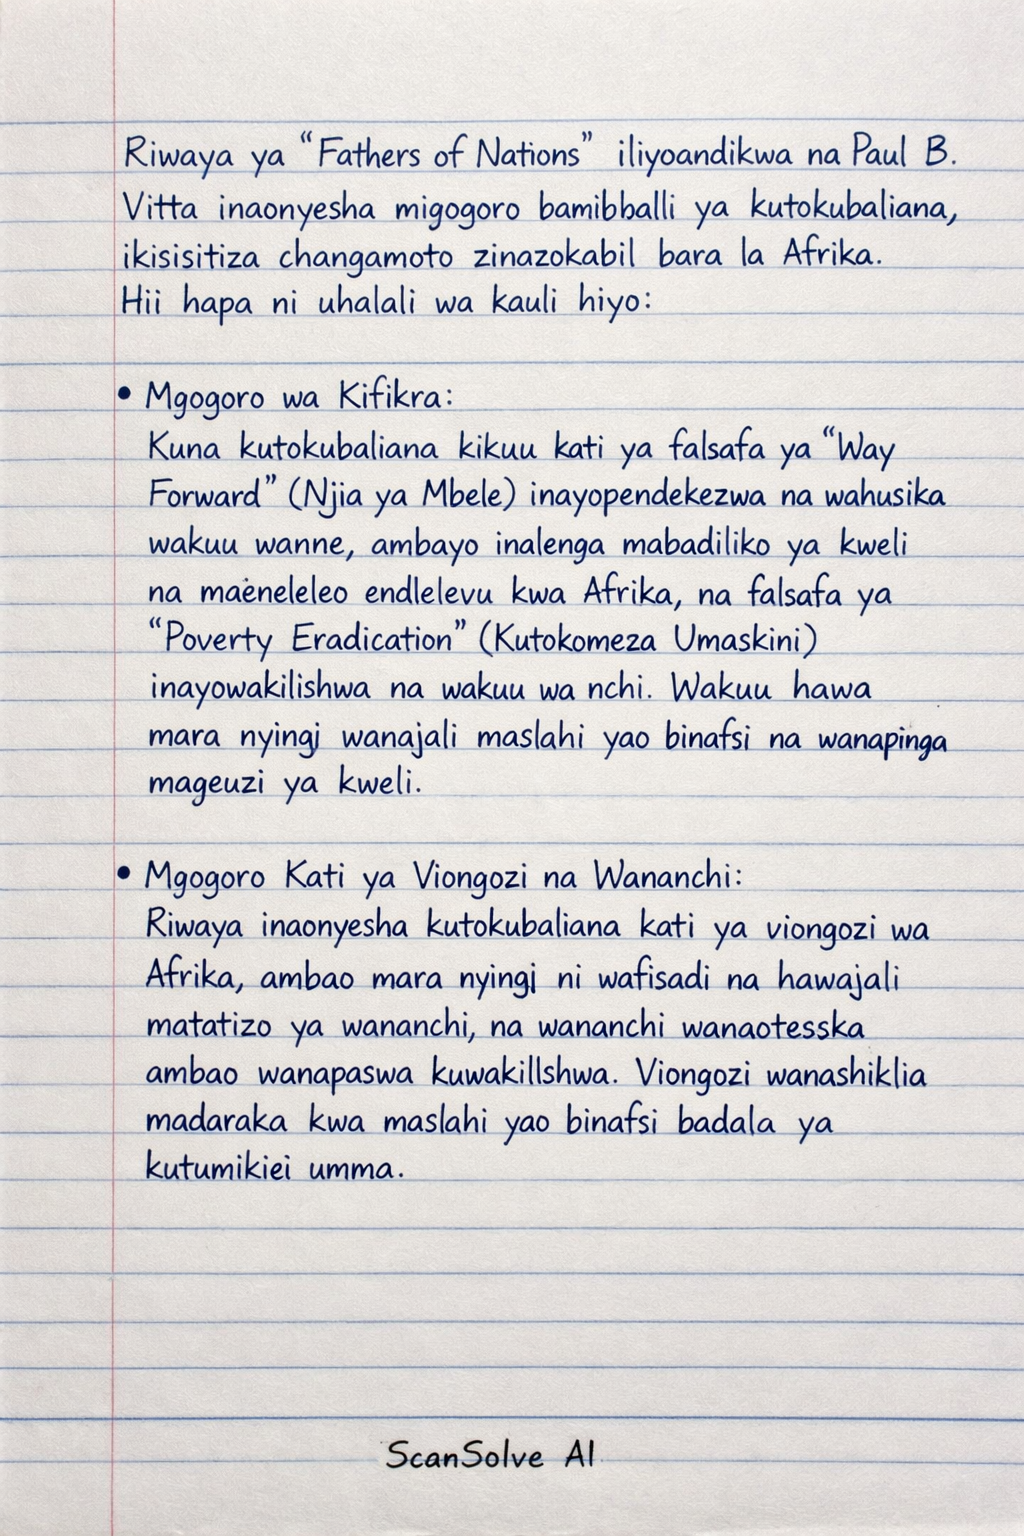 Riwaya ya “Fathers of Nations” iliyoandikwa na Paul B.
Vitta inaonyesha migogoro bamibballi ya kutokubaliana,
ikisisitiza changamoto zinazokabil bara la Afrika.
Hii hapa ni uhalali wa kauli hiyo:
• Mgogoro wa Kifikra:
Kuna kutokubaliana kikuu kati ya falsafa ya “Way
Forward” (Njia ya Mbele) inayopendekezwa na wahusika
wakuu wanne, ambayo inalenga mabadiliko ya kweli
na maėneleleo endlelevu kwa Afrika, na falsafa ya
“Poverty Eradication” (Kutokomeza Umaskini)
inayowakilishwa na wakuu wa nchi. Wakuu hawa
mara nyingi wanajali maslahi yao binafsi na wanapinga
mageuzi ya kweli.
• Mgogoro Kati ya Viongozi na Wananchi:
Riwaya inaonyesha kutokubaliana kati ya viongozi wa
Afrika, ambao mara nyingi ni wafisadi na hawajali
matatizo ya wananchi, na wananchi wanaotesska
ambao wanapaswa kuwakillshwa. Viongozi wanashiklia
madaraka kwa maslahi yao binafsi badala ya
kutumikiei umma.
ScanSolve AI